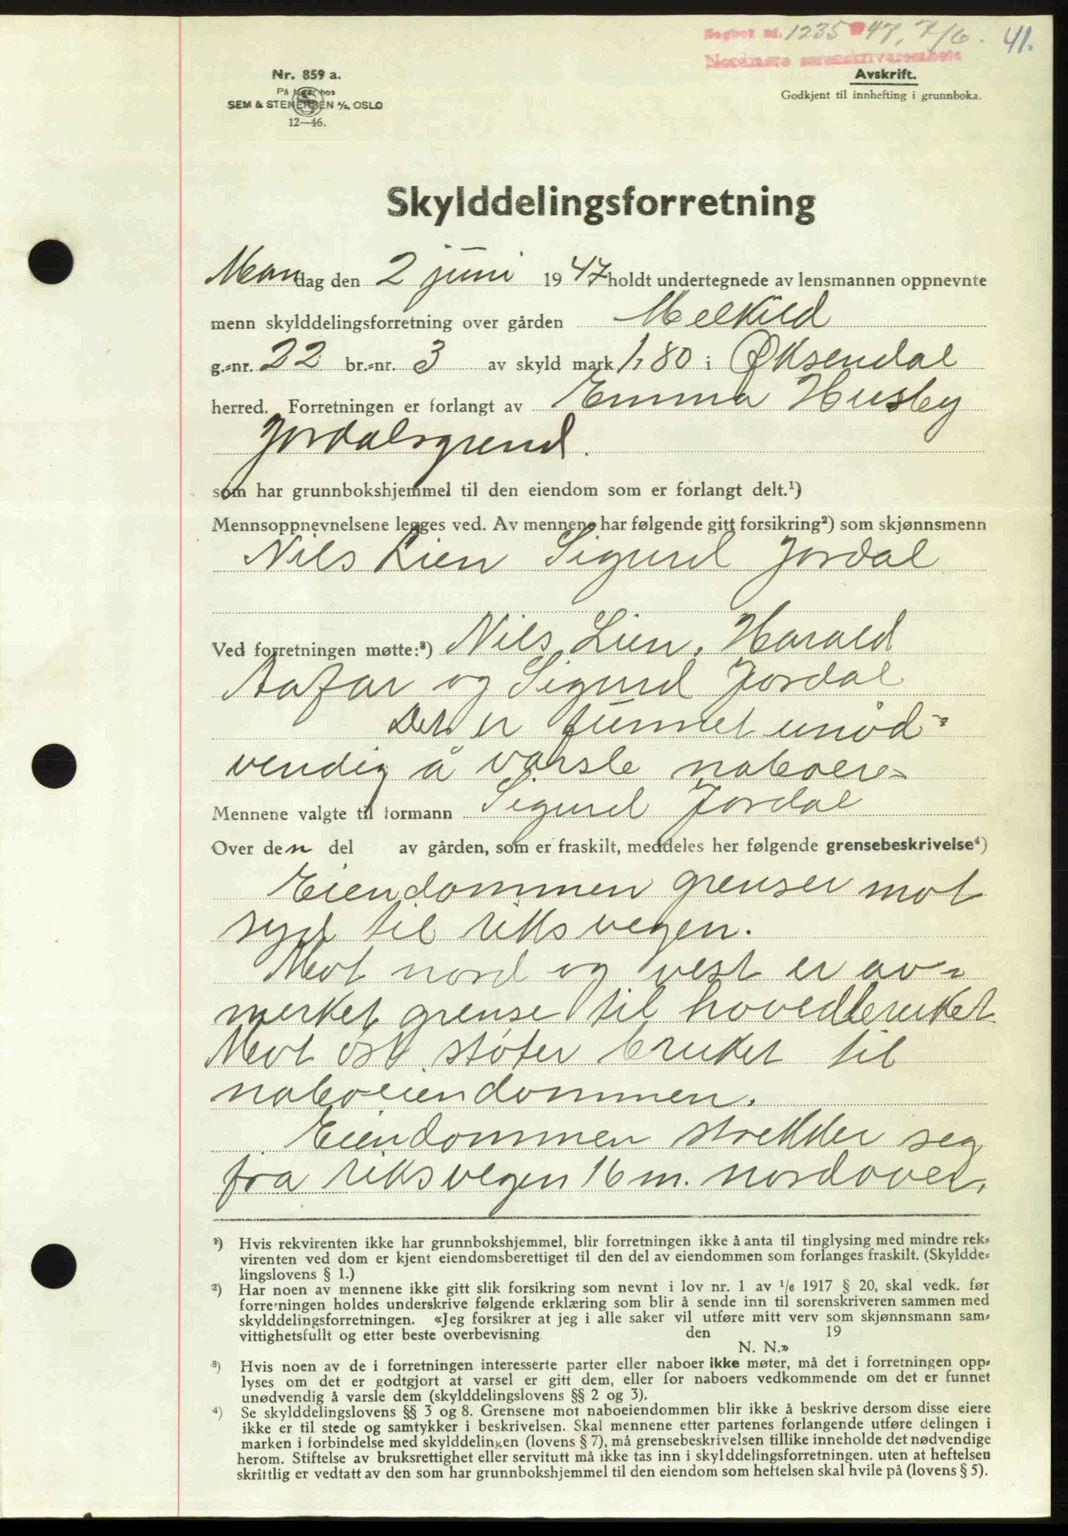 Dagbok nr. 1235 47, 7/6. 41.
Nordmøre sorenskriverembete
Nr. 859 a.
På lager hos
SEM & STENERSEN A/S, OSLO
12—46.
Avskrift.
Godkjent til innhefting i grunnboka.
Skylddelingsforretning
Mandag den 2 juni 1947 holdt undertegnede av lensmannen oppnevnte
menn skylddelingsforretning over gården Melkild
g.-nr. 22 br.-nr. 3 av skyld mark 1,80 i Øksendal
herred. Forretningen er forlangt av Emma Husby
Jordalsgrend.
som har grunnbokshjemmel til den eiendom som er forlangt delt.¹)
Mennsoppnevnelsene legges ved. Av mennene har følgende gitt forsikring²) som skjønnsmenn
Nils Lien Sigurd Jordal
Ved forretningen møtte:³) Nils Lien, Harald
Aafar og Sigurd Jordal
Det er funnet unød-
vendig å varsle naboer-
Mennene valgte til formann Sigurd Jordal
Over den del av gården, som er fraskilt, meddeles her følgende grensebeskrivelse⁴)
Eiendommen grenser mot
syd til riksvegen.
Mot nord og vest er av-
merket grense til hovedbruket
Mot øst støter bruket til
naboeiendommen.
Eiendommen strekker seg
fra riksvegen 16 m. nordover.
¹) Hvis rekvirenten ikke har grunnbokshjemmel, blir forretningen ikke å anta til tinglysing med mindre rek-
virenten ved dom er kjent eiendomsberettiget til den del av eiendommen som forlanges fraskilt. (Skyldde-
lingslovens § 1.)
²) Har noen av mennene ikke gitt slik forsikring som nevnt i lov nr. 1 av 1/6 1917 § 20, skal vedk. før
forretningen holdes underskrive følgende erklæring som blir å sende inn til sorenskriveren sammen med
skylddelingsforretningen. «Jeg forsikrer at jeg i alle saker vil utføre mitt verv som skjønnsmann sam-
vittighetsfullt og etter beste overbevisning den 19
N. N.»
³) Hvis noen av de i forretningen interesserte parter eller naboer ikke møter, må det i forretningen opp-
lyses om det er godtgjort at varsel er gitt dem, eller for naboers vedkommende om det er funnet
unødvendig å varsle dem (skylddelingslovens §§ 2 og 3).
⁴) Se skylddelingslovens §§ 3 og 8. Grensene mot naboeiendommen blir ikke å beskrive dersom disse eiere
ikke er til stede og samtykker i beskrivelsen. Skal mennene etter partenes forlangende utføre delingen i
marken i forbindelse med skylddelingen (lovens § 7), må grensebeskrivelsen tillike inneholde det nødvendige
herom. Stiftelse av bruksrettighet eller servitutt må ikke tas inn i skylddelingsforretningen, uten at heftelsen
skriftlig er vedtatt av den som har grunnbokshjemmel til den eiendom som heftelsen skal hvile på (lovens § 5).